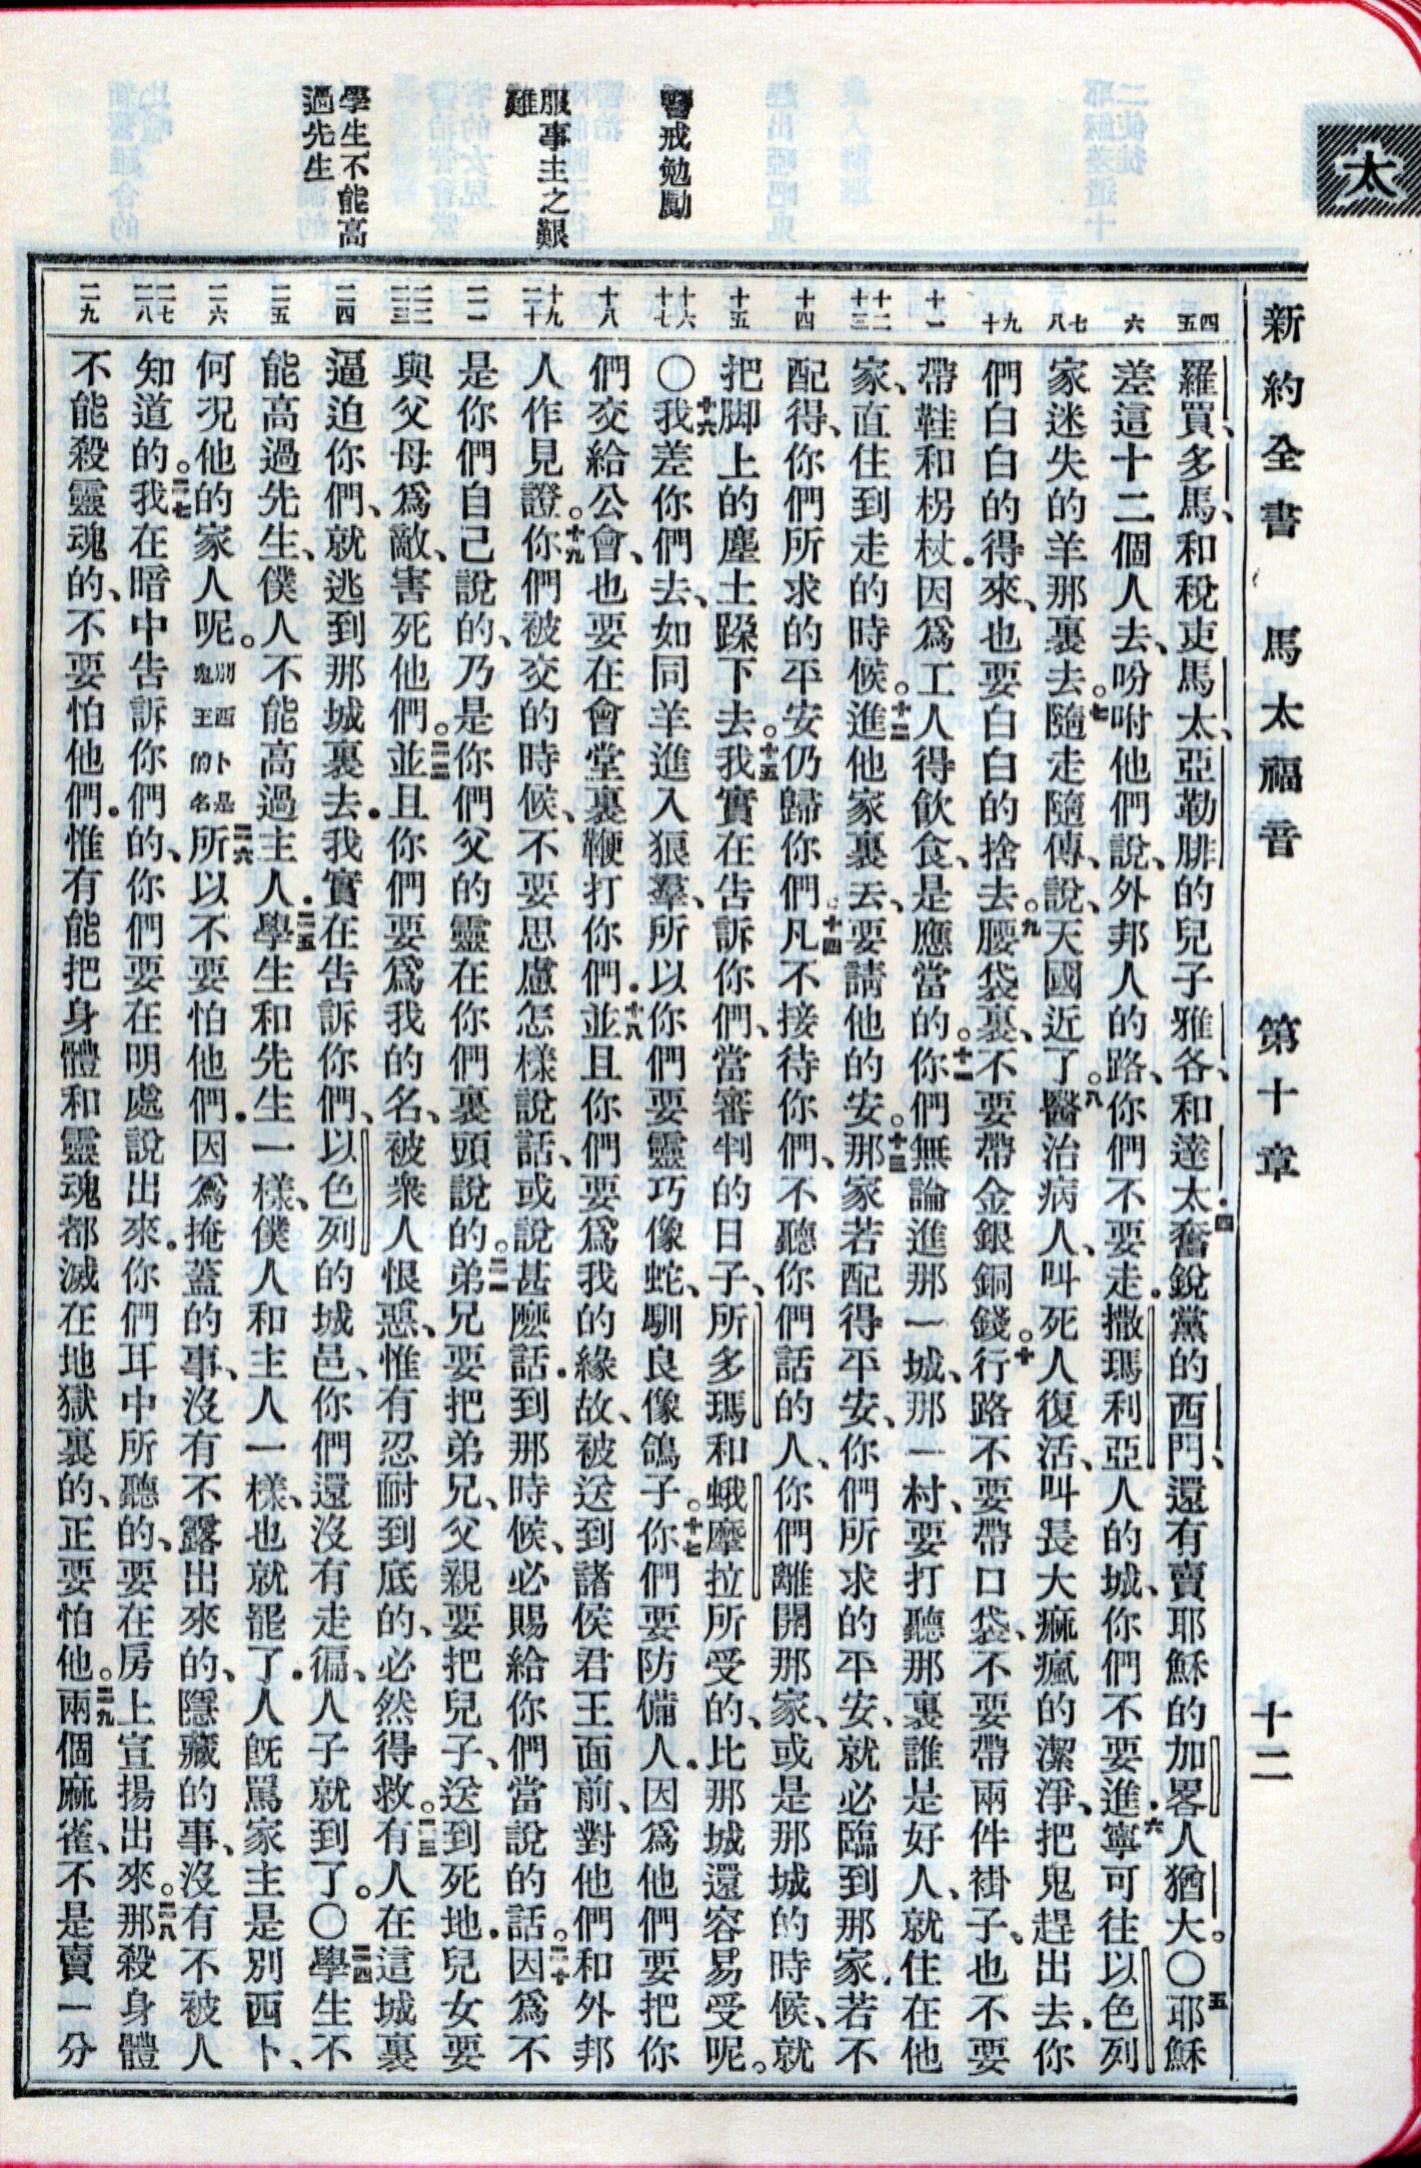 太
新約全書 馬太福音 第十章 十二
警戒勉勵
服事主之艱
難
學生不能高
過先生
四
五
六
七
八
九
十
十一
十二
十三
十四
十五
十六
十七
十八
十九
二十
二一
二二
二三
二四
二五
二六
二七
二八
二九
羅買、多馬、和稅吏馬太、亞勒腓的兒子雅各、和達太.四奮銳黨的西門、還有賣耶穌的加畧人猶大。〇五耶穌
差這十二個人去、吩咐他們說、外邦人的路、你們不要走.撒瑪利亞人的城、你們不要進.六寧可往以色列
家迷失的羊那裏去。七隨走隨傳、說、天國近了。八醫治病人、叫死人復活、叫長大痲瘋的潔淨、把鬼趕出去.你
們白白的得來、也要白白的捨去。九腰袋裏、不要帶金銀銅錢。十行路不要帶口袋、不要帶兩件褂子、也不要
帶鞋和柺杖.因爲工人得飲食、是應當的。十一你們無論進那一城、那一村、要打聽那裏誰是好人、就住在他
家、直住到走的時候。十二進他家裏去、要請他的安。十三那家若配得平安、你們所求的平安、就必臨到那家.若不
配得、你們所求的平安仍歸你們。十四凡不接待你們、不聽你們話的人、你們離開那家、或是那城的時候、就
把脚上的塵土跺下去。十五我實在告訴你們、當審判的日子、所多瑪和蛾摩拉所受的、比那城還容易受呢。
〇十六我差你們去、如同羊進入狼羣、所以你們要靈巧像蛇、馴良像鴿子。十七你們要防備人.因爲他們要把你
們交給公會、也要在會堂裏鞭打你們.十八並且你們要爲我的緣故、被送到諸侯君王面前、對他們和外邦
人作見證。十九你們被交的時候、不要思慮怎樣說話、或說甚麼話.到那時候、必賜給你們當說的話。二十因爲不
是你們自己說的、乃是你們父的靈在你們裏頭說的。二一弟兄要把弟兄、父親要把兒子、送到死地.兒女要
與父母爲敵、害死他們。二二並且你們要爲我的名、被衆人恨惡、惟有忍耐到底的、必然得救。二三有人在這城裏
逼迫你們、就逃到那城裏去.我實在告訴你們、以色列的城邑、你們還沒有走徧、人子就到了。〇二四學生不
能高過先生、僕人不能高過主人.二五學生和先生一樣、僕人和主人一樣、也就罷了.人既罵家主是別西卜、
何况他的家人呢。別西卜是鬼王的名二六所以不要怕他們.因爲掩蓋的事、沒有不露出來的、隱藏的事、沒有不被人
知道的。二七我在暗中告訴你們的、你們要在明處說出來.你們耳中所聽的、要在房上宣揚出來。二八那殺身體
不能殺靈魂的、不要怕他們.惟有能把身體和靈魂都滅在地獄裏的、正要怕他。二九兩個麻雀、不是賣一分